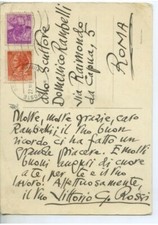 allo Scultore
Domenico Rambelli
Via Raimondo
da Capua, 5
ROMA
Molte, molte grazie, caro
Rambelli: il tuo buon
ricordo ci ha fatto un
grande piacere. E molti
buoni auguri di cuore
a te, per te e il tuo
lavoro! Affettuosamente,
il tuo Vittorio G. Rossi